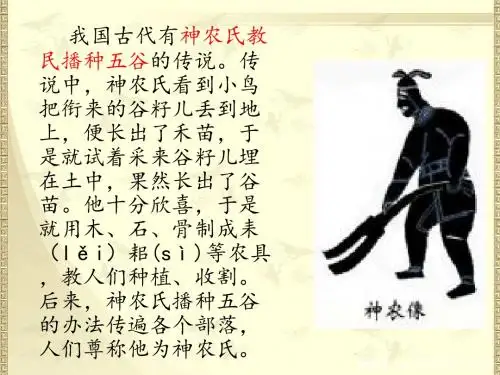 我国古代有神农氏教
民播种五谷的传说。传
说中，神农氏看到小鸟
把衔来的谷籽儿丢到地
上，便长出了禾苗，于
是就试着采来谷籽儿埋
在土中，果然长出了谷
苗。他十分欣喜，于是
就用木、石、骨制成耒
（lěi）耜(sì)等农具
，教人们种植、收割。
后来，神农氏播种五谷
的办法传遍各个部落，
人们尊称他为神农氏。
神农像